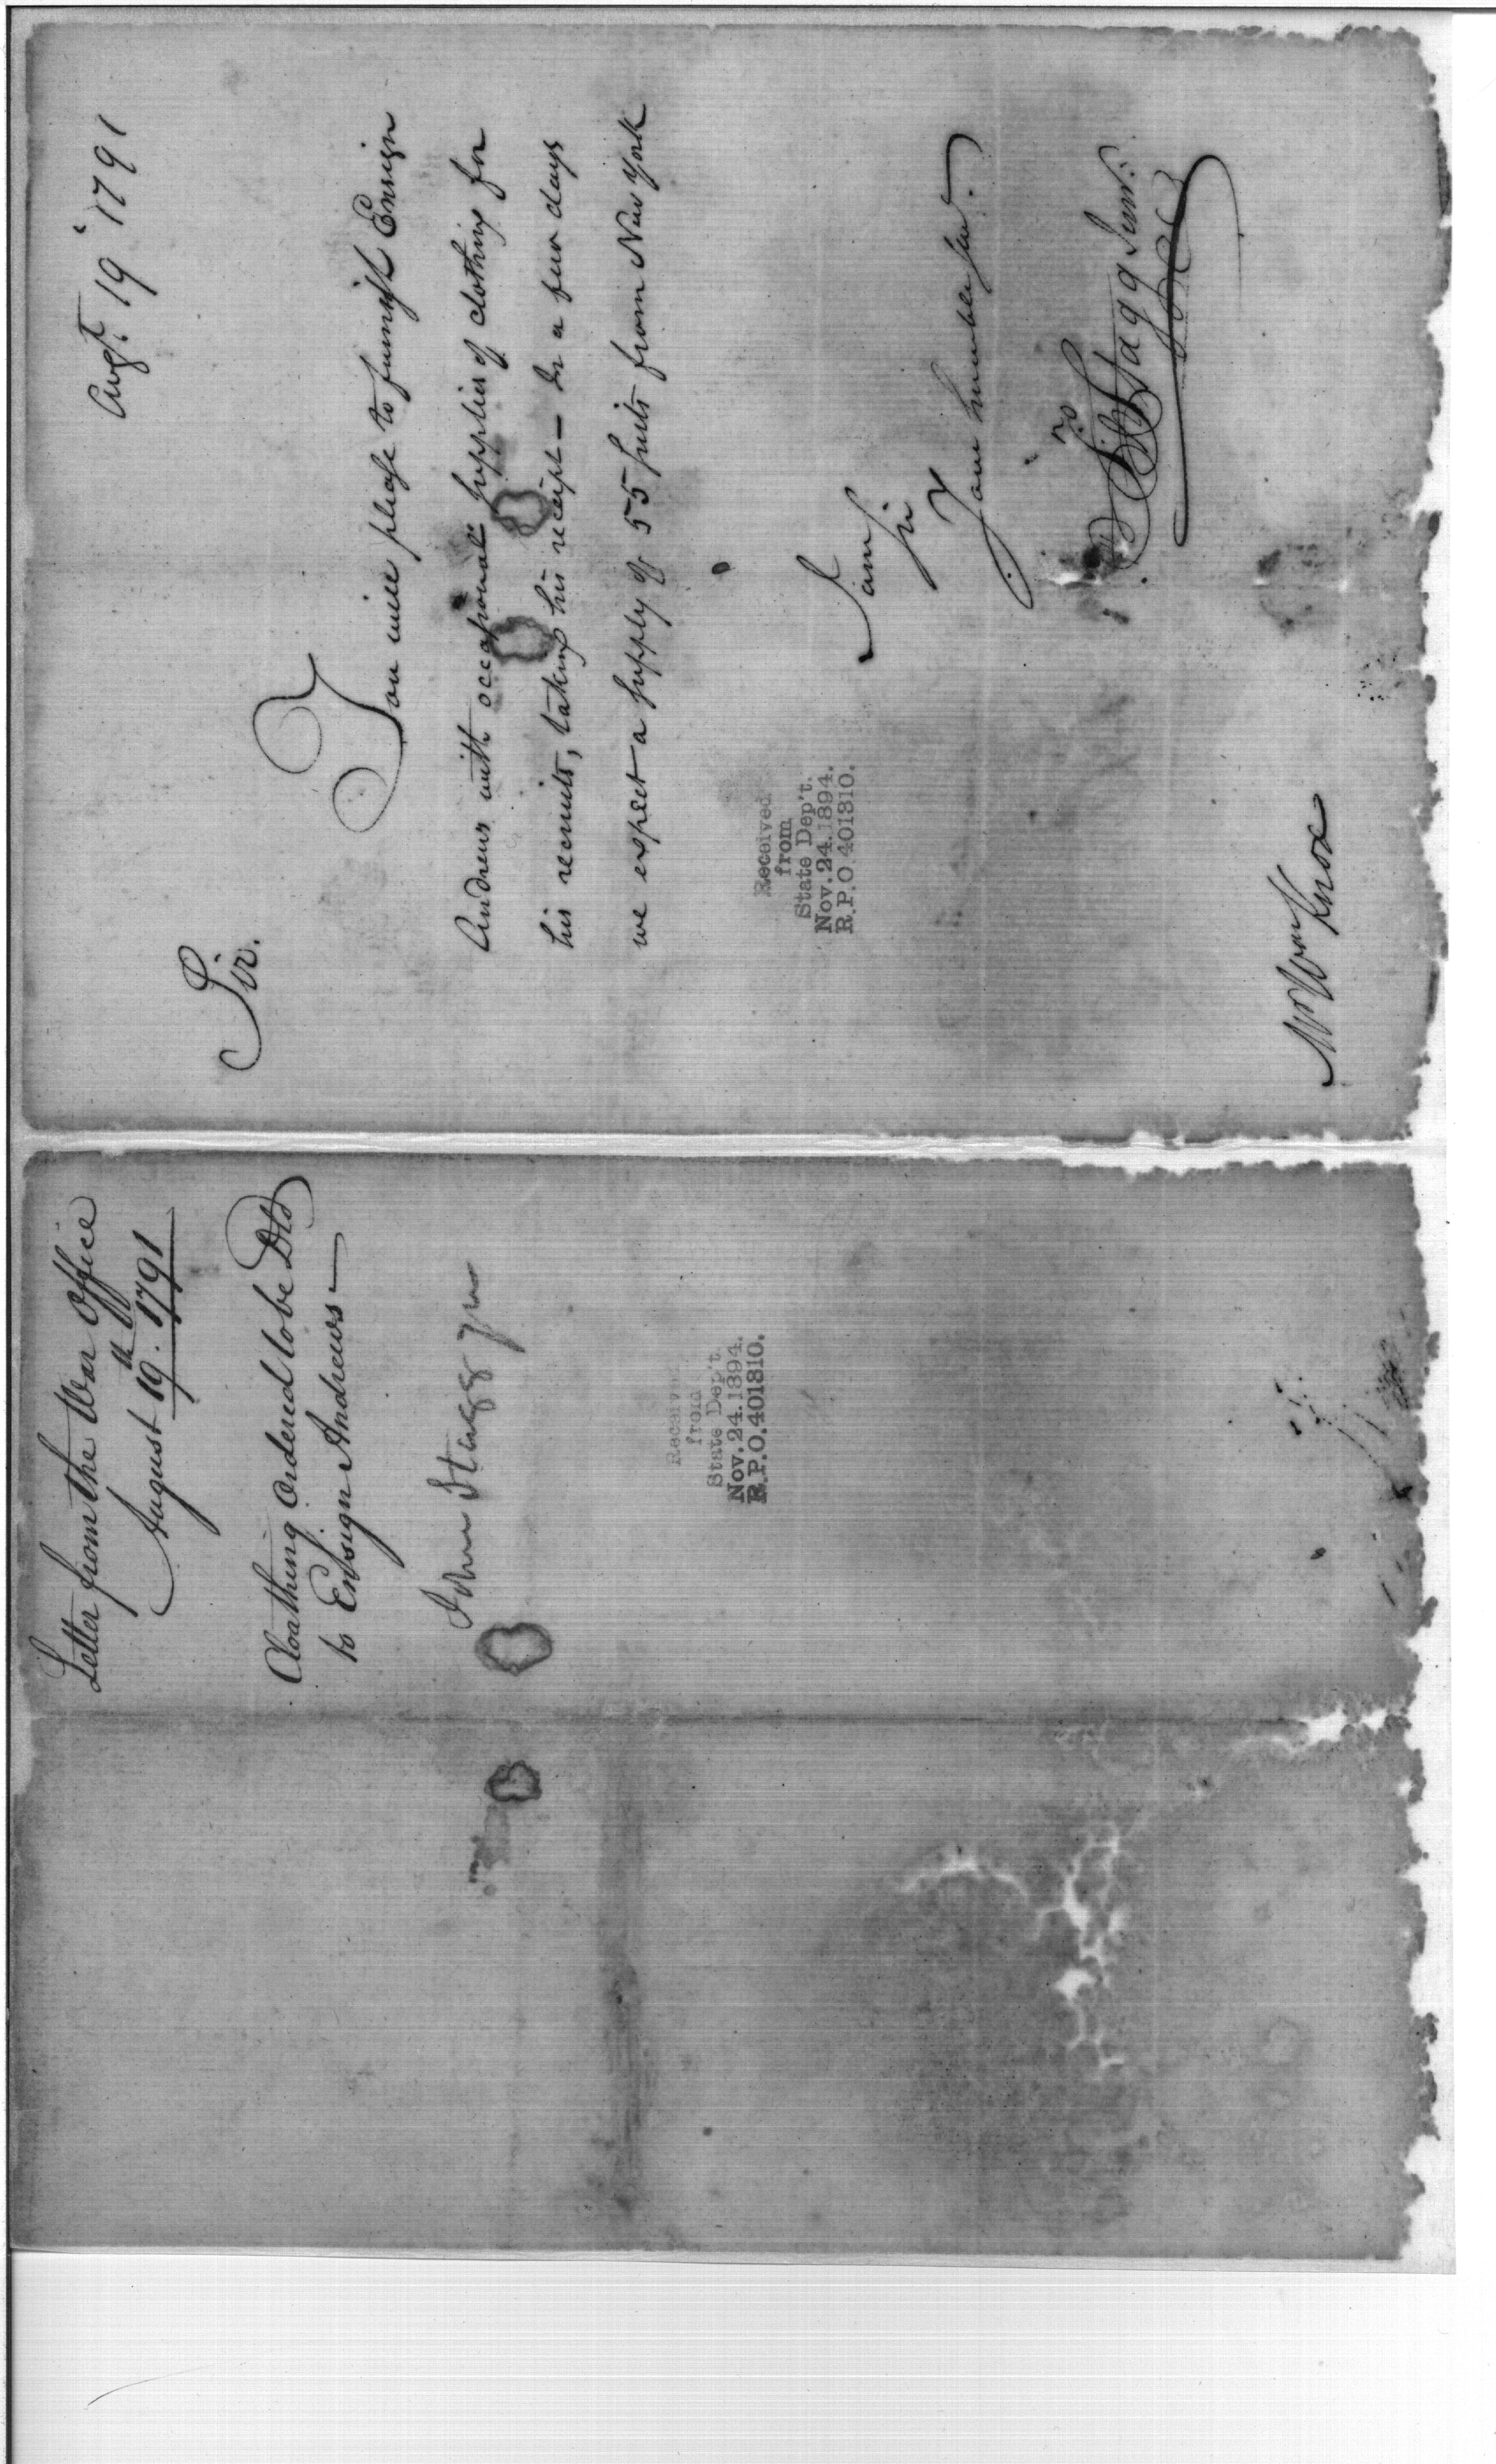 Augt. 19 1791
Sir.
You will please to furnish Ensign
Andrews with occasional supplies of clothing for
his recruits, taking his receipt — In a few days
we expect a supply of 55 suits from New York
I am
Sir
Your humble Servt.
Jno Stagg Junr.
Received
from
State Dep't.
Nov. 24. 1894.
R.P.O. 401310.
Mr Wm Knox
Letter from the War Office
August 19th. 1791
Cloathing Ordered to be Dld
to Ensign Andrews —
John Stagg Jr
Received
from
State Dep't.
Nov. 24. 1894.
R.P.O. 401310.